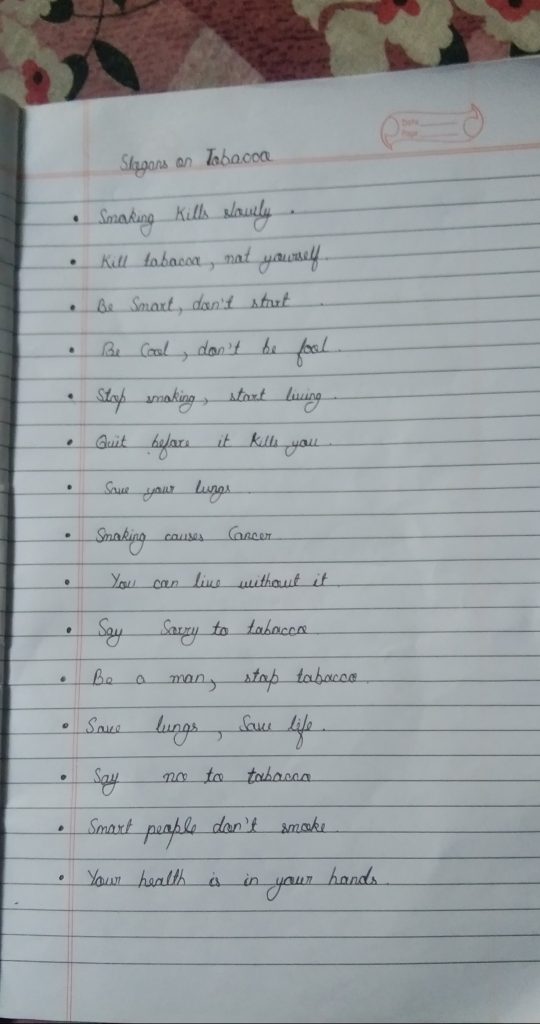 Date
Page
Slogans on Tobacco
• Smoking Kills slowly .
• Kill tobacco, not yourself.
• Be Smart, don't start .
• Be Cool, don't be fool .
• Stop smoking, start living .
• Quit before it Kills you .
• Save your lungs .
• Smoking causes Cancer
• You can live without it .
• Say Sorry to tobacco
• Be a man, stop tobacco .
• Save lungs, Save life .
• Say no to tobacco
• Smart people don't smoke .
• Your health is in your hands .